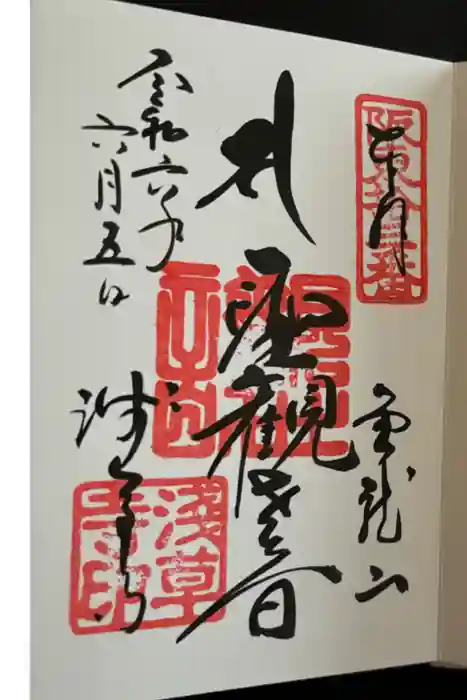 奉拝
阪東拾三番
金龍山
聖観世音
令和六年
六月五日
浅草寺
淺草
寺印